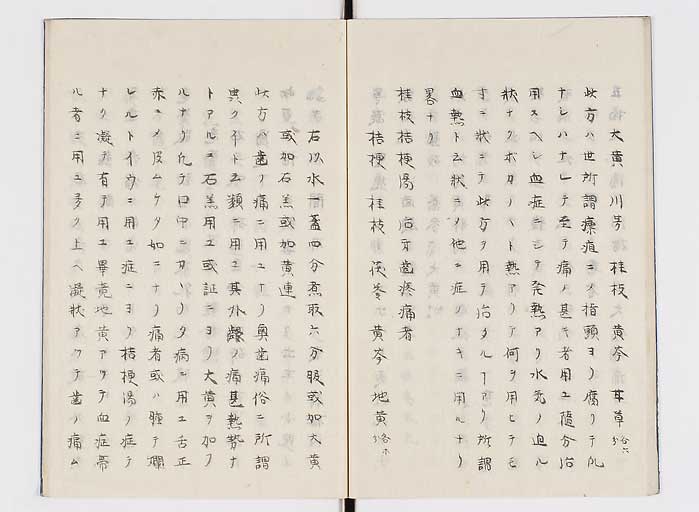 大黄 川芎 桂枝 黄芩 甘草 各六分
此方ハ世所謂瘭疽ニメ指頭ヨリ腐リテ
ナシハナレテ至テ痛ノ甚キ者用ユ随分治
用スヘシ血症ニシテ発熱アリ水気ノ迫ル
状ナクポカリハト熱アリテ何ヲ用ヒテモ
状ニテ此方ヲ用テ治タルアリ所謂
血熱ト云状ニメ他ニ症ノナキニ用ルナリ
畧ナリ
桂枝桔梗湯 治牙歯疼痛者
桔梗 桂枝 茯苓 黄芩 地黄 各分
右以水一盞四分煮取六分服或加大黄
或加石羔或加黄連
此方ハ歯ノ痛ニ用ユナリ奥歯痛俗ニ所謂
クイト云類ニ用ユ其外齦ノ痛甚熱勢ナ
トアルニ石羔用ユ或証ニヨリ大黄ヲ加フ
ルナリ テ口中ニカリタ病ニ用ユ舌正
赤ニメ皮ムケタ如ニナリ痛者或ハ腫テ爛
レルトイウニ用ユ症ニヨリ桔梗湯ノ症テ
ナク凝ノ有テ用ユ畢竟地黄アツテ血症
ル者ニ用ユ多ク上ヘ凝状アツテ歯ノ痛ム